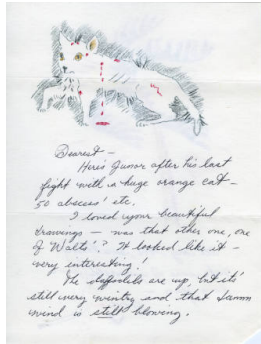 Dearest –
Here's Junior after his last
fight with a huge orange cat –
50 abscess' etc.
I loved your beautiful
drawings – was that other one, one
of "Walts"? It looked like it –
very interesting!
The daffodils are up, but it's
still very wintry and that damn
wind is still blowing.